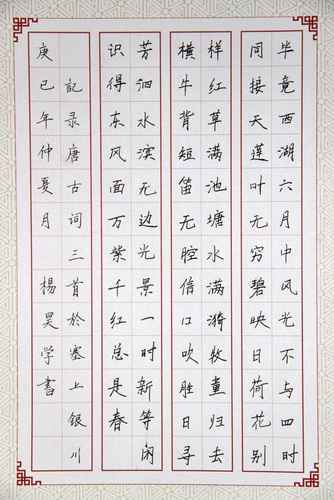 毕竟西湖六月中风光不与四时
同接天莲叶无穷碧映日荷花别
样红草满池塘水满漪牧童归去
横牛背短笛无腔信口吹胜日寻
芳泗水滨无边光景一时新等闲
识得东风面万紫千红总是春
記录唐古词三首於塞上银川
庚已年仲夏月 楊昊学書